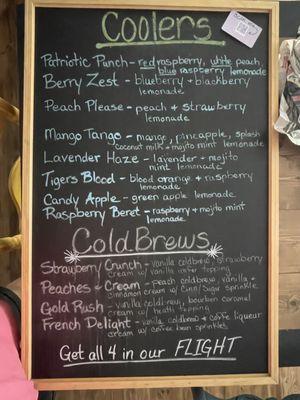 Coolers
Patriotic Punch - red raspberry, white peach,
blue raspberry lemonade
Berry Zest - blueberry + blackberry
lemonade
Peach Please - peach + strawberry
lemonade
Mango Tango - mango, pineapple, splash
coconut milk + mojito mint lemonade
Lavender Haze - lavender + mojito
mint lemonade
Tigers Blood - blood orange + raspberry
lemonade
Candy Apple - green apple lemonade
Raspberry Beret - raspberry + mojito mint
lemonade
Cold Brews
Strawberry Crunch - vanilla coldbrew, strawberry
cream w/ vanilla wafer topping
Peaches + Cream - peach coldbrew, vanilla +
cinnamon cream w/ Cinn/Sugar sprinkle
Gold Rush - vanilla coldbrew, bourbon caramel
cream w/ heath topping
French Delight - vanilla coldbrew & coffee liqueur
cream w/ coffee bean sprinkles
Get all 4 in our FLIGHT